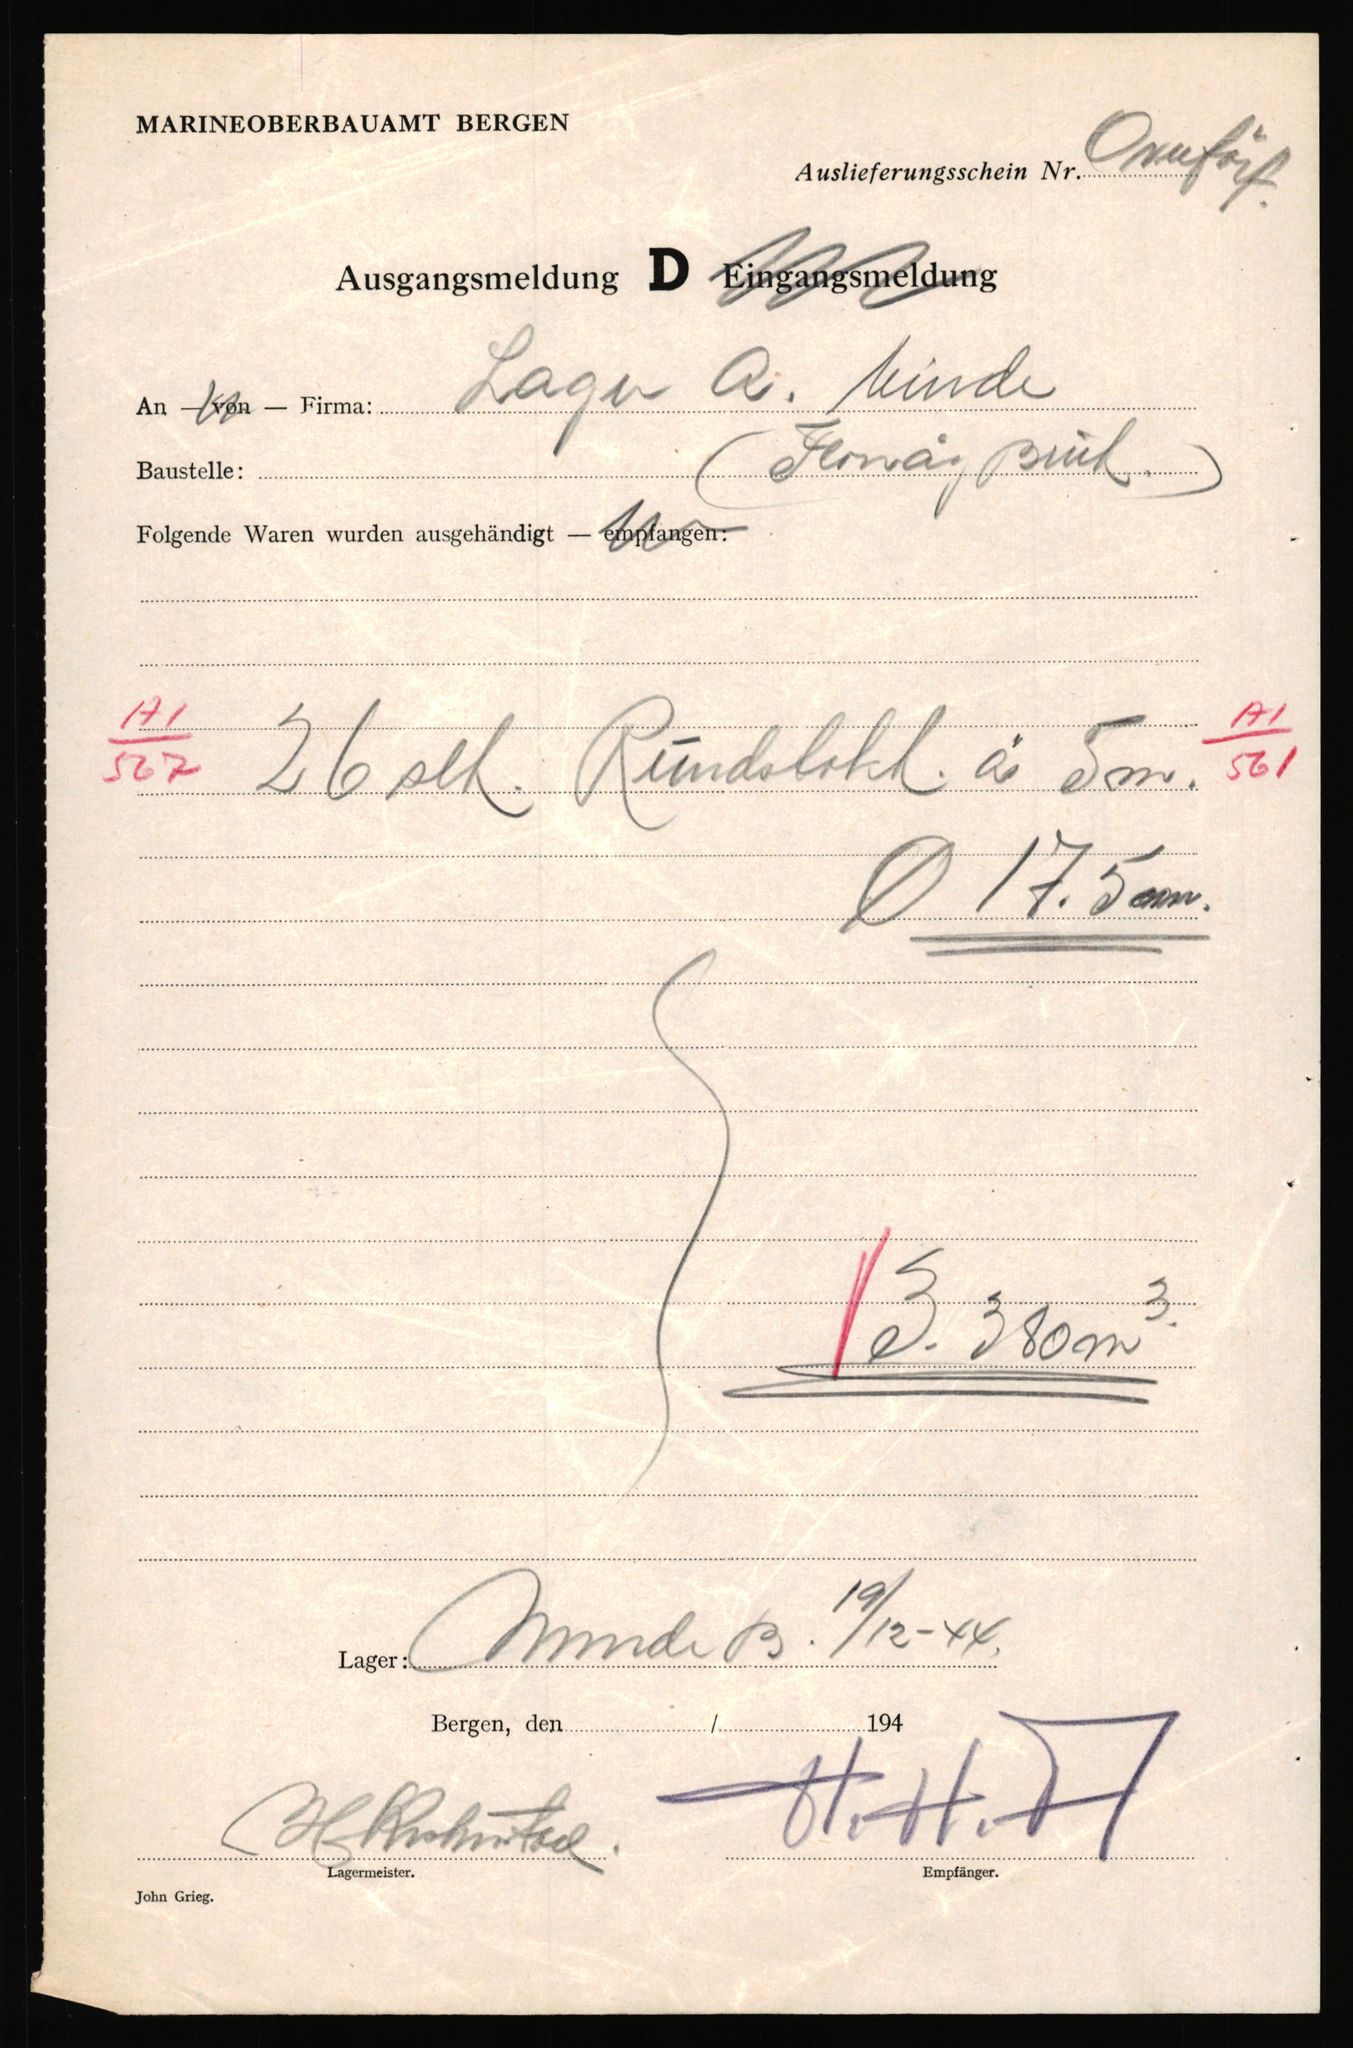 MARINEOBERBAUAMT BERGEN
Auslieferungsschein Nr.
Ausgangsmeldung D Eingangsmeldung
An — von — Firma: Lager A. Minde
Baustelle:
Folgende Waren wurden ausgehändigt — empfangen:
A1/567 26 stk. Rundstokk. à 5 m. A1/561
Ø 17.5 mm.
3.380 m³.
Lager: Minde B. 19/12-44.
Bergen, den / 194
H.H.
Lagermeister. Empfänger.
John Grieg.